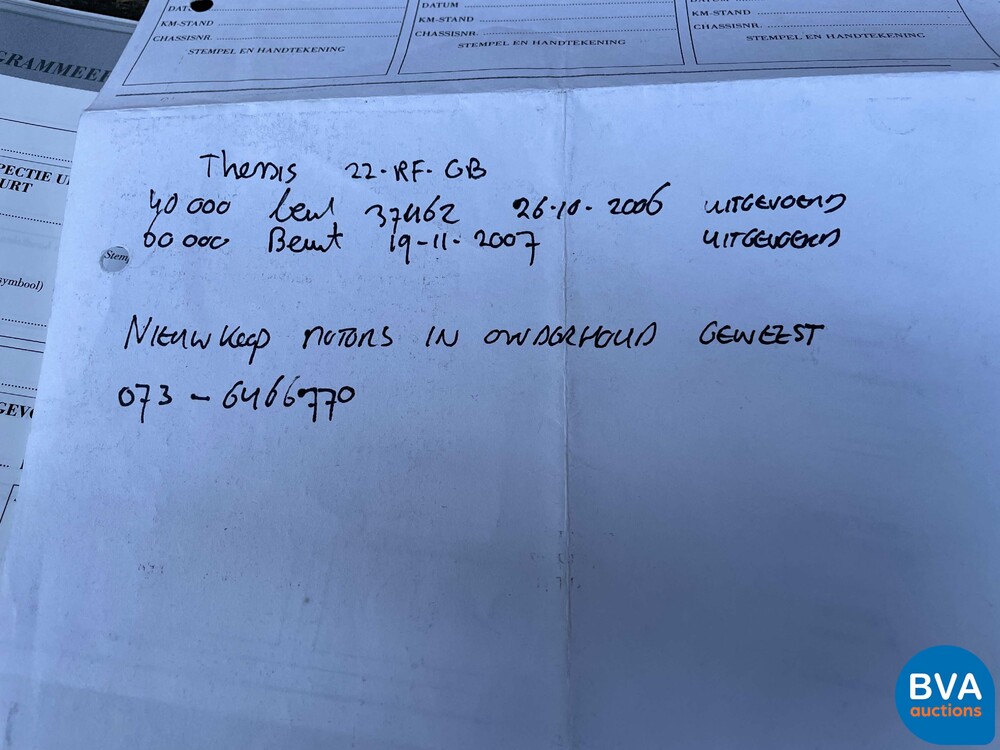 DATUM
KM-STAND
CHASSISNR.
STEMPEL EN HANDTEKENING
DATUM
KM-STAND
CHASSISNR.
STEMPEL EN HANDTEKENING
DATUM
KM-STAND
CHASSISNR.
STEMPEL EN HANDTEKENING
Thesis 22-RF-GB
40 000 beurt 37462 26-10-2006 UITGEVOERD
60 000 Beurt 19-11-2007 UITGEVOERD
Stem
symbool)
NIEUWKOOP MOTORS IN ONDERHOUD GEWEEST
073 - 6466770
BVA
auctions